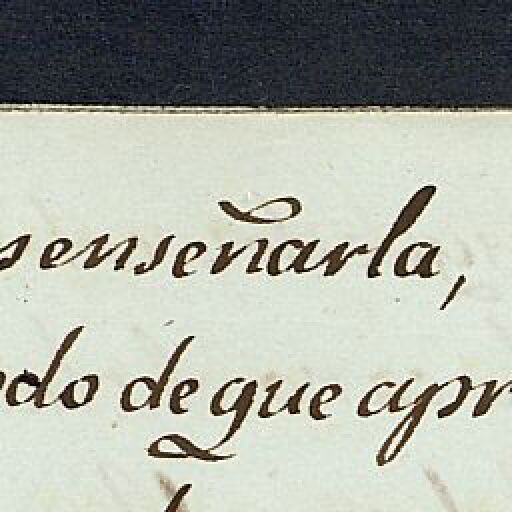 enseñarla,
do de que apr